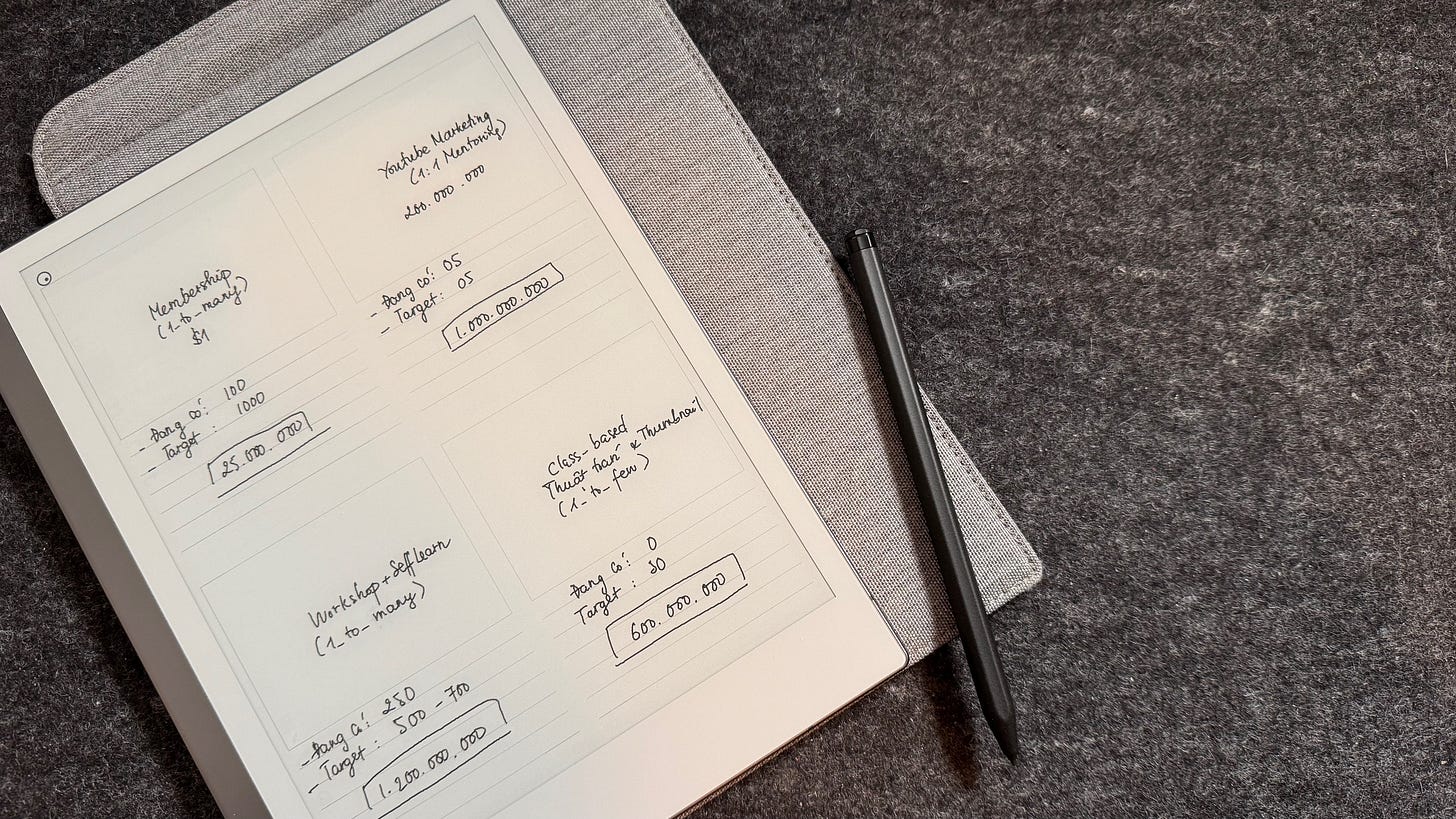 Membership
(1_to_many)
$1
- Đang có: 100
- Target: 1000
25.000.000
Youtube Marketing
(1:1 Mentoring)
200.000.000
- Đang có: 05
- Target: 05
1.000.000.000
Workshop + Self Learn
(1_to_many)
- Đang có: 250
- Target: 500 - 700
1.200.000.000
Class_based
Thuật toán & Thumbnail
(1_to_few)
- Đang có: 0
- Target: 30
600.000.000